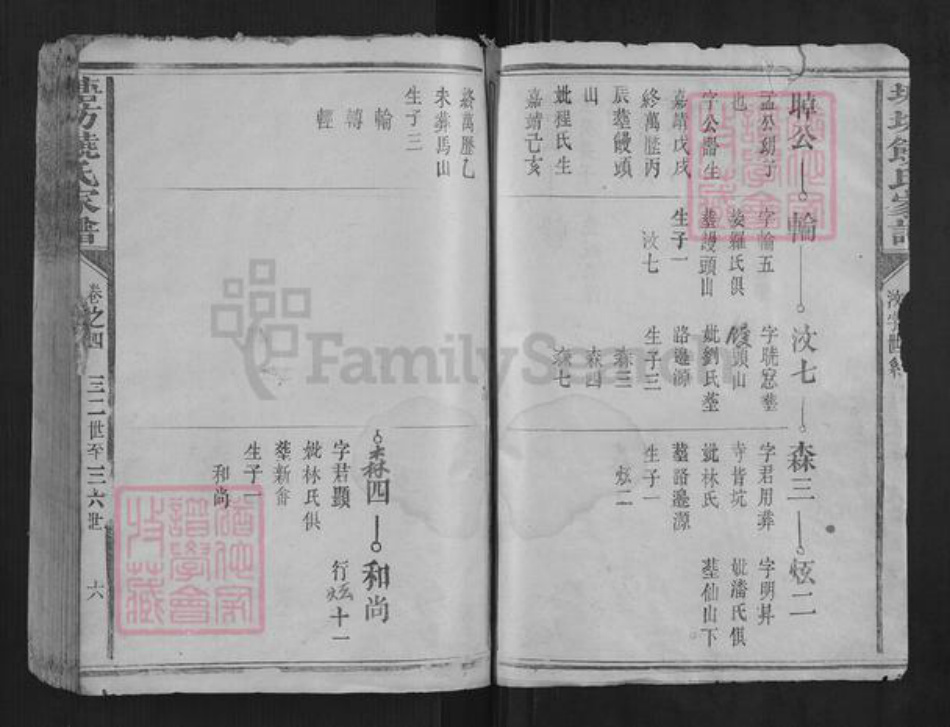 焯公
孟公幼子
也
字公譽生
嘉靖戊戌
終萬歷丙
辰塟饅頭
山
妣程氏生
嘉靖己亥
終萬歷乙
未葬馬山
生子三
輪
轉
輕
輪
字輪五
娶羅氏俱
塟謾頭山
生子一
汶七
汶七
頭山
妣劉氏塟
路邊源
生子三
森三
森四
森七
森三
字君用葬
寺背坑
妣林氏
塟路邊源
生子一
炫二
炫二
字明昇
妣潘氏俱
塟仙山下
森四
字君顯
妣林氏俱
塟新畬
生子一
和尚
和尚
行炫十一
卷之四
三二世至三六世
六
FamilySearch